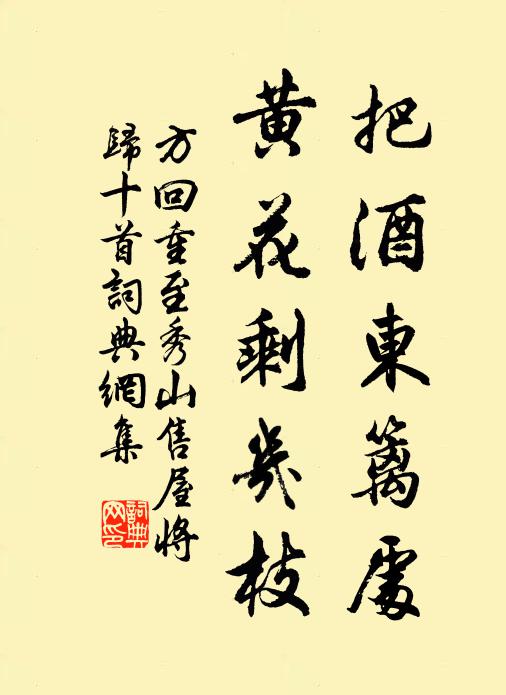 把酒東籬處
黄花剩幾枝
方回重至秀山售屋將
歸十首詞典網集
詞典
网印